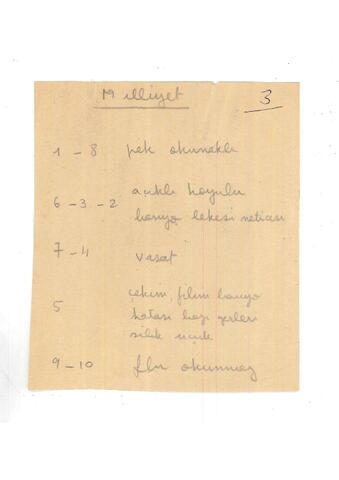 Milliyet 3
1 - 8 pek okunaklı
açıklı koyulu
6 - 3 - 2 banyo lekesi neticesi
7 - 4 vasat
çekim, filim banyo
5 hatası bazı yerleri
silik uçuk
9 - 10 flu okunmaz